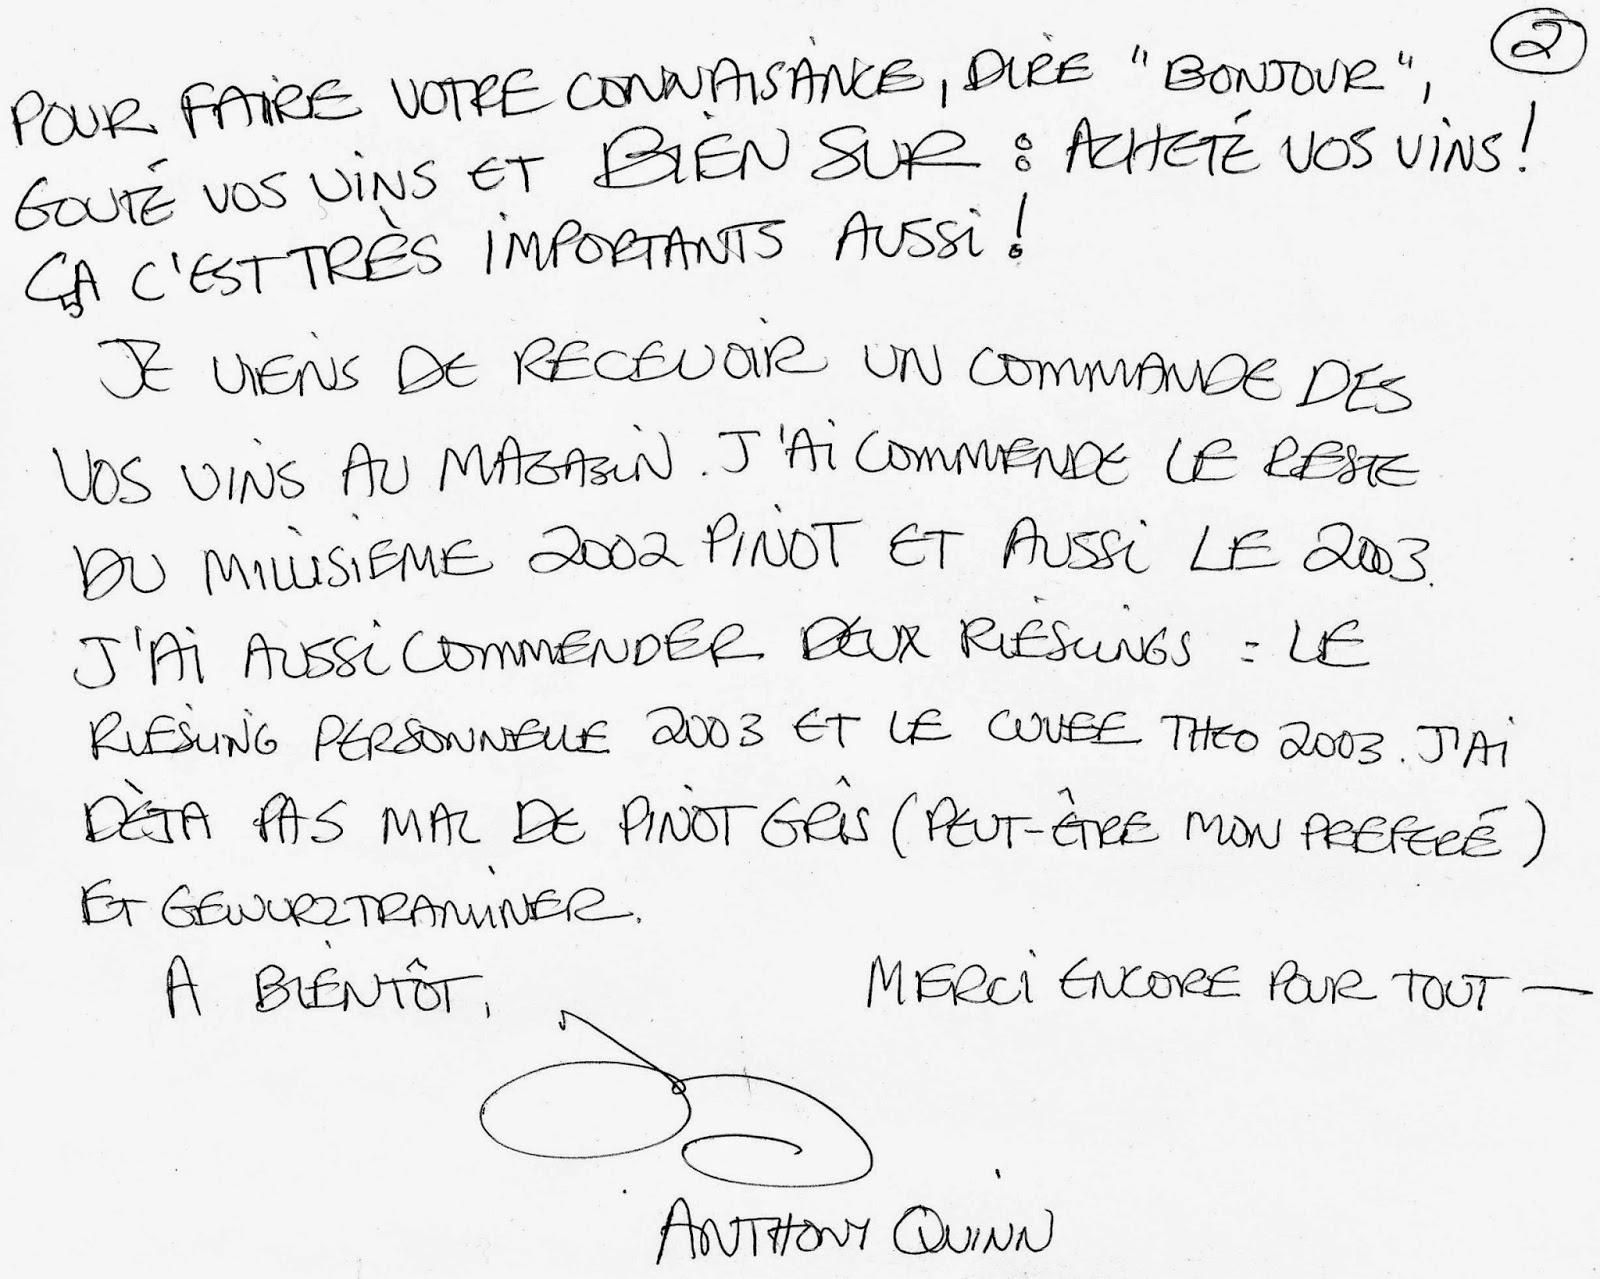 2
POUR FAIRE VOTRE CONNAISANCE, DIRE "BONJOUR",
GOUTÉ VOS VINS ET BIEN SUR : ACHETÉ VOS VINS!
ÇA C'EST TRÈS IMPORTANTS AUSSI!
JE VIENS DE RECEVOIR UN COMMANDE DES
VOS VINS AU MAGASIN. J'AI COMMENDE LE RESTE
DU MILLISIEME 2002 PINOT ET AUSSI LE 2003.
J'AI AUSSI COMMENDER DEUX RIESLINGS : LE
RIESLING PERSONNELLE 2003 ET LE CUVEE THEO 2003. J'AI
DÈJA PAS MAL DE PINOT GRÎS (PEUT-ÊTRE MON PREFERÉ)
ET GEWURZTRAMINER.
A BIENTÔT, MERCI ENCORE POUR TOUT —
ANTHONY QUINN